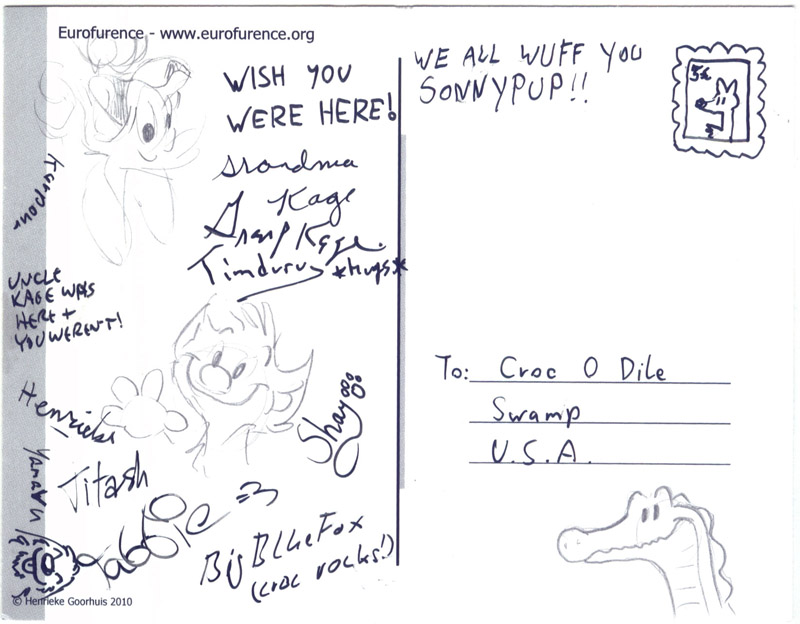 Eurofurence - www.eurofurence.org
WISH YOU
WERE HERE!
Grandma
Kage
Gramp Kage
Timduru *HUGS*
UNCLE
KAGE WAS
HERE +
YOU WERENT!
Henrieke
Shay
Jitash
Tabbie =3
Big Blue Fox
(croc rocks!)
© Henrieke Goorhuis 2010
WE ALL WUFF YOU
SONNYPUP!!
5¢
To: Croc O Dile
Swamp
U.S.A.